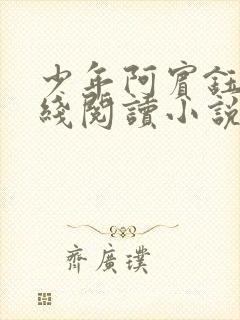 少年阿賓鈺
綫閱讀小説
齊廣璞